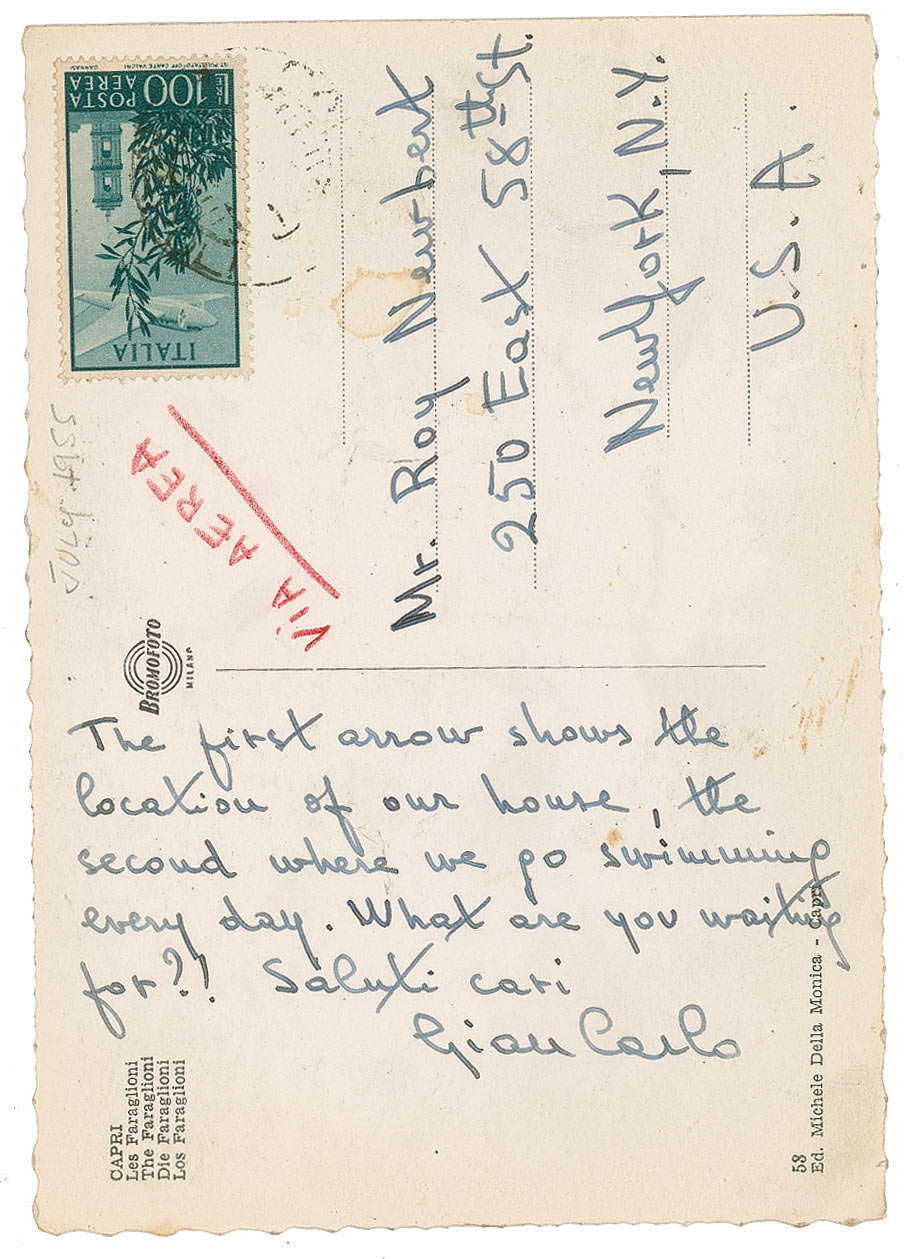 The first arrow shows the
location of our house, the
second where we go swimming
every day. What are you waiting
for?! Saluti cari
Gian Carlo
Mr. Roy Newbert
250 East 58th St.
New York, N.Y.
U.S.A.
VIA AEREA
July 1955
ITALIA
POSTA
AEREA
LIRE 100
BROMOFOTO
MILANO
CAPRI
Les Faraglioni
The Faraglioni
Die Faraglioni
Los Faraglioni
53
Ed. Michele Della Monica - Capri